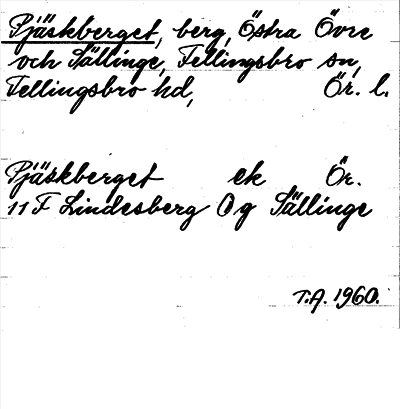 Pjäskberget, berg, Östra Övre
och Sällinge, Fellingsbro sn,
Fellingsbro hd, Ör. l.
Pjäskberget ek Ör.
11 F Lindesberg O g Sällinge
T.A. 1960.